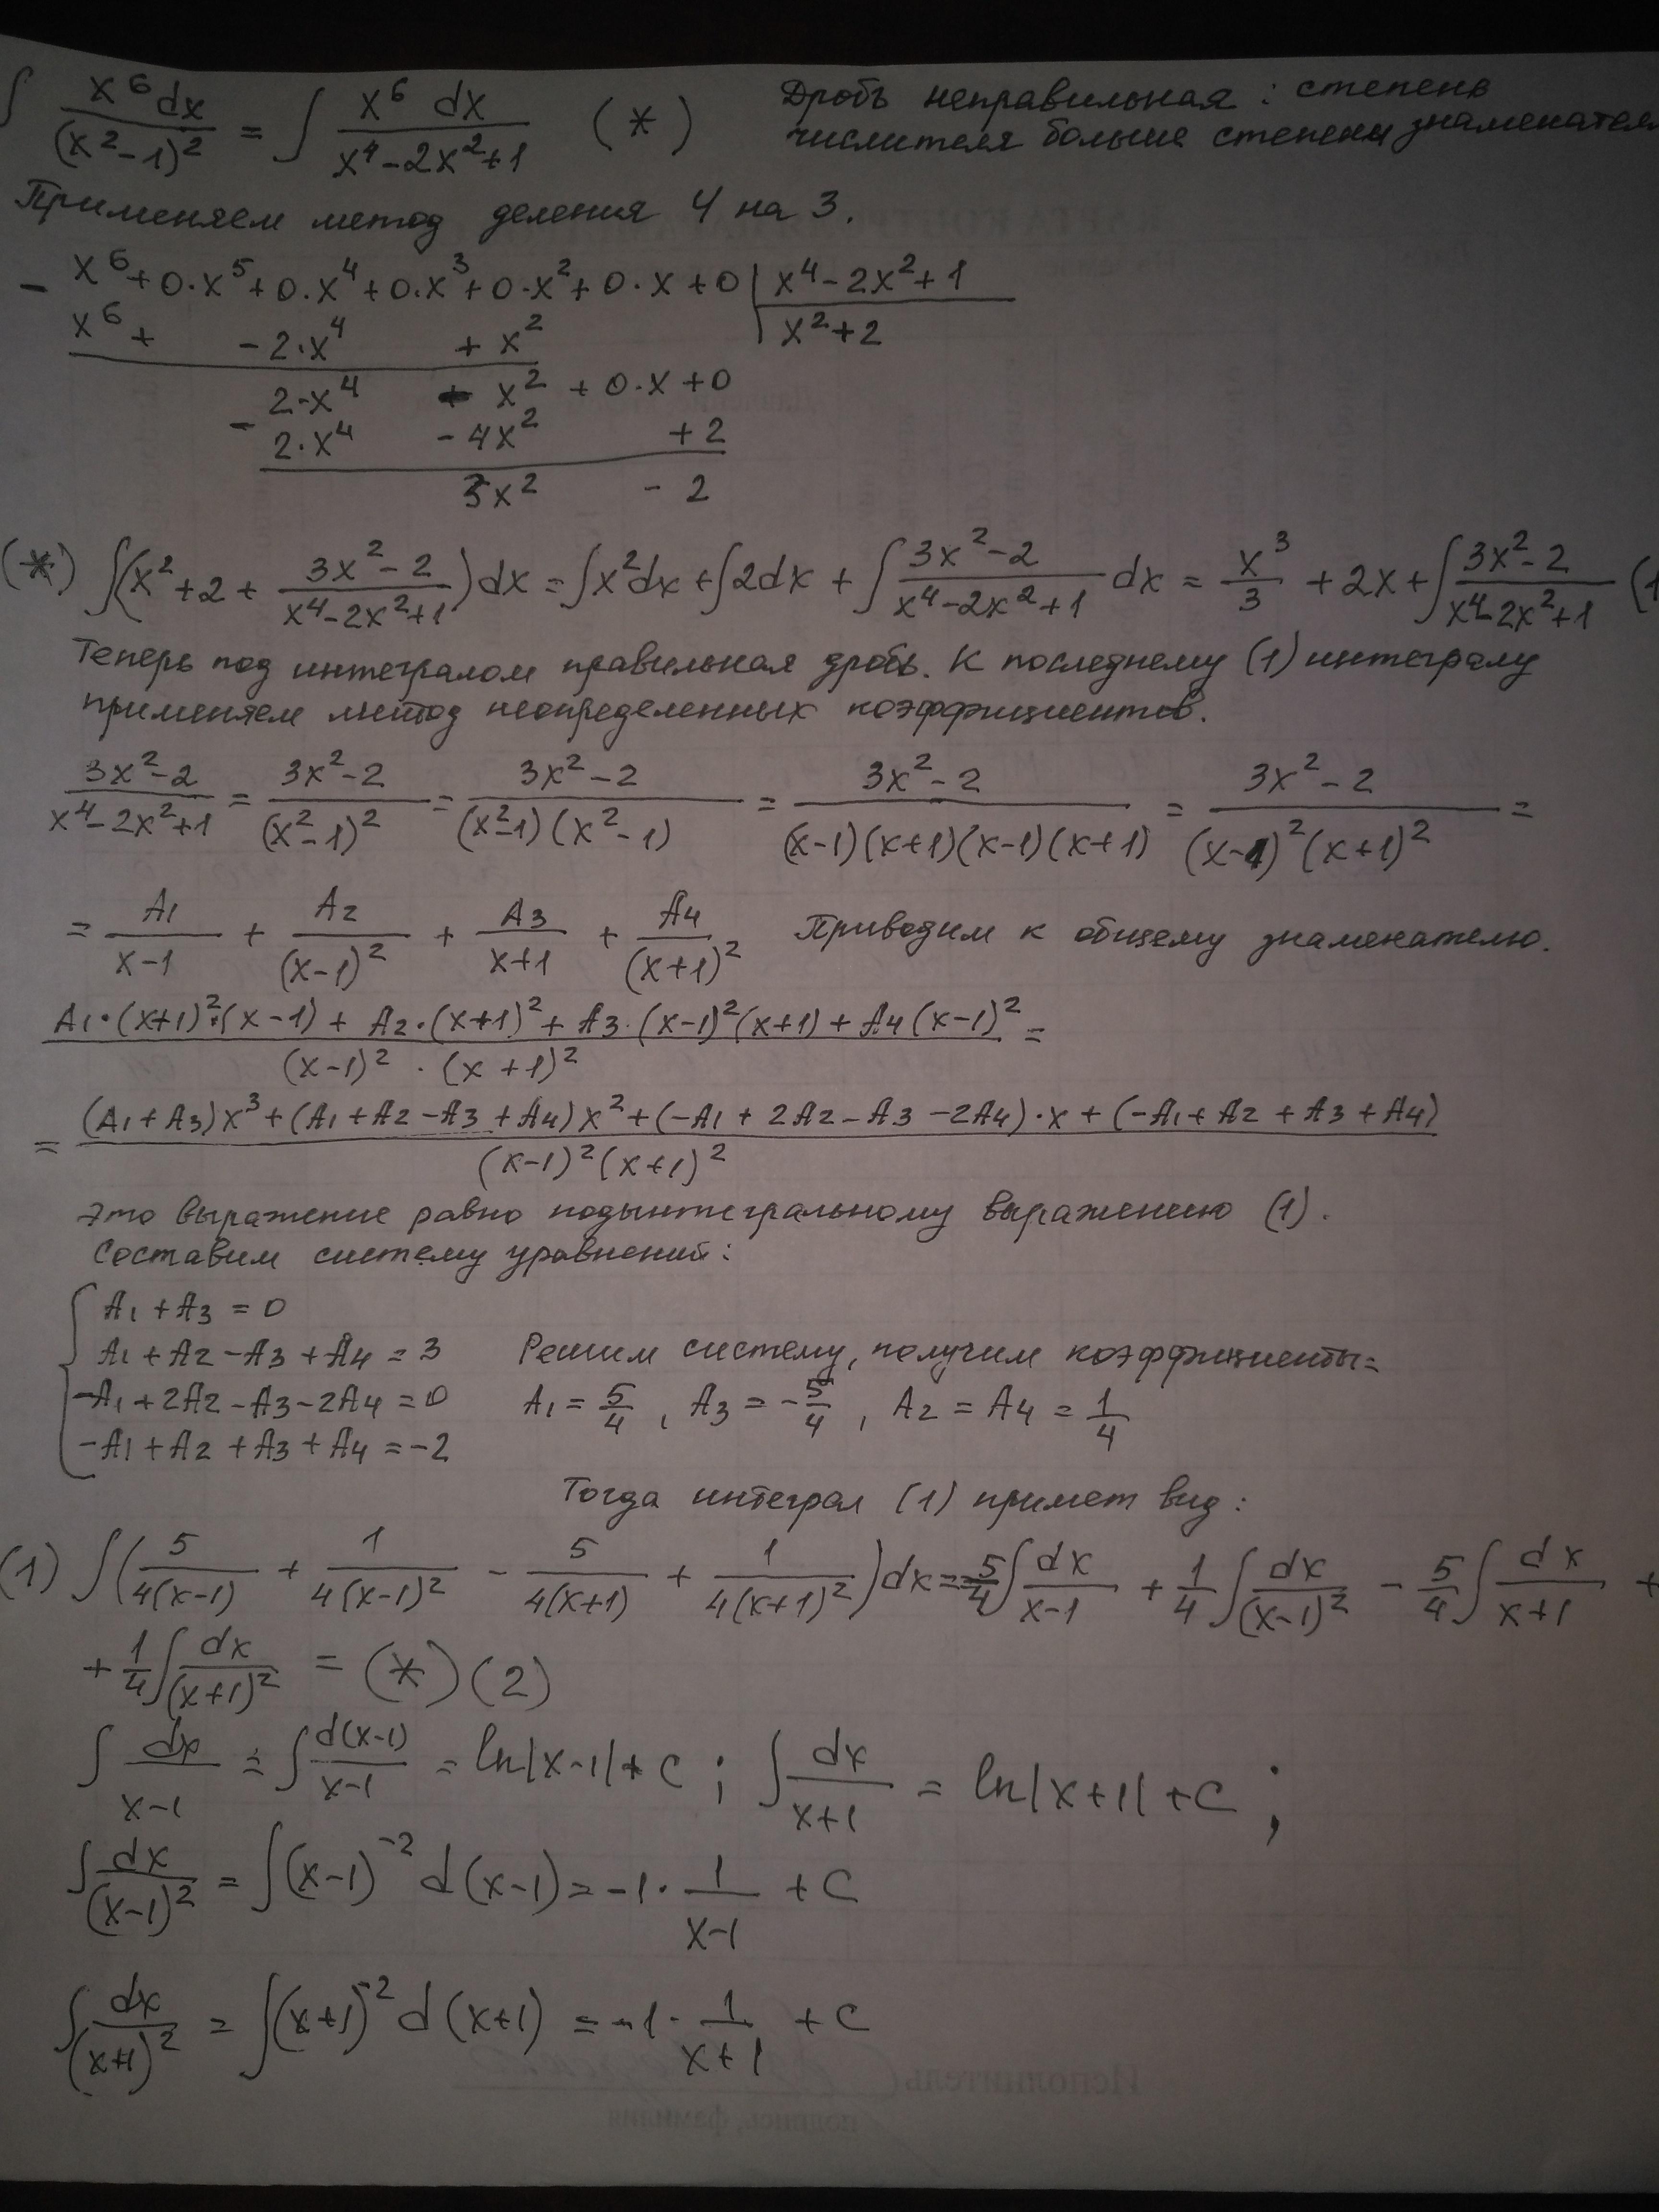 ∫ x⁶dx/(x²-1)² = ∫ x⁶ dx/(x⁴-2x²+1) (*) Дробь неправильная: степень
числителя больше степени знаменателя
Применяем метод деления 4 на 3.
- x⁶+0·x⁵+0·x⁴+0·x³+0·x²+0·x+0 | x⁴-2x²+1
x⁶+ -2·x⁴ + x² | x²+2
2·x⁴ x² + 0·x+0
- 2·x⁴ - 4x² +2
3x² - 2
(*) ∫(x²+2+ (3x²-2)/(x⁴-2x²+1))dx = ∫x²dx+∫2dx + ∫(3x²-2)/(x⁴-2x²+1) dx = x³/3 + 2x+∫(3x²-2)/(x⁴-2x²+1) (1
Теперь под интегралом правильная дробь. К последнему (1) интегралу
применяем метод неопределенных коэффициентов.
(3x²-2)/(x⁴-2x²+1) = (3x²-2)/(x²-1)² = (3x²-2)/((x²-1)(x²-1)) = (3x²-2)/((x-1)(x+1)(x-1)(x+1)) = (3x²-2)/((x-1)²(x+1)²) =
= A₁/(x-1) + A₂/(x-1)² + A₃/(x+1) + A₄/(x+1)² Приводим к общему знаменателю.
(A₁·(x+1)²·(x-1) + A₂·(x+1)²+ A₃·(x-1)²(x+1) + A₄(x-1)²)/((x-1)²·(x+1)²) =
= ((A₁+A₃)x³+(A₁+A₂-A₃+A₄)x²+(-A₁+2A₂-A₃-2A₄)·x+(-A₁+A₂+A₃+A₄))/((x-1)²(x+1)²)
Это выражение равно подынтегральному выражению (1).
Составим систему уравнений:
{ A₁+A₃=0
A₁+A₂-A₃+A₄=3 Решим систему, получим коэффициенты:
-A₁+2A₂-A₃-2A₄=0 A₁=5/4, A₃=-5/4, A₂=A₄=1/4
-A₁+A₂+A₃+A₄=-2
Тогда интеграл (1) примет вид:
(1) ∫(5/(4(x-1)) + 1/(4(x-1)²) - 5/(4(x+1)) + 1/(4(x+1)²))dx = 5/4∫dx/(x-1) + 1/4∫dx/(x-1)² - 5/4∫dx/(x+1) +
+ 1/4∫dx/(x+1)² = (*)(2)
∫dx/(x-1) = ∫d(x-1)/(x-1) = ln|x-1|+C; ∫dx/(x+1) = ln|x+1|+C;
∫dx/(x-1)² = ∫(x-1)⁻²d(x-1)=-1·1/(x-1)+C
∫dx/(x+1)² = ∫(x+1)⁻²d(x+1)=-1·1/(x+1)+C
Исполнитель
подпись, фамилия